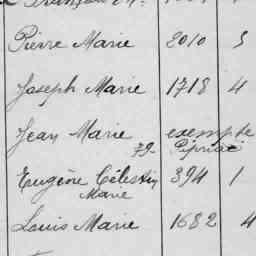 Pierre Marie 2010 5
Joseph Marie 1718 4
Jean Marie exempté
79 Pipriac
Eugène Célestin 394 1
Marie
Louis Marie 1682 4